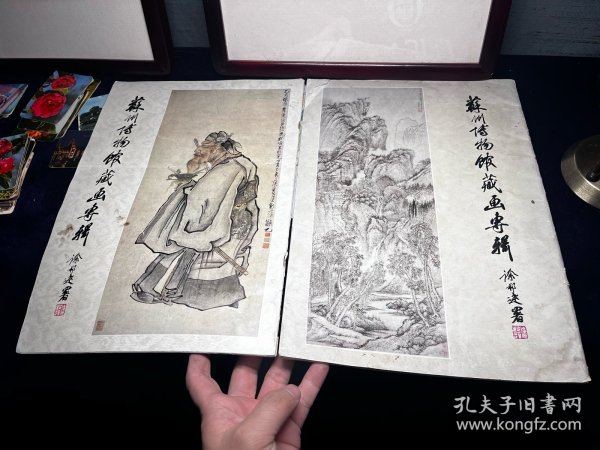 蘇州博物館藏画專輯
徐邦达署
蘇州博物館藏画專輯
徐邦达署
孔夫子旧书网
www.kongfz.com